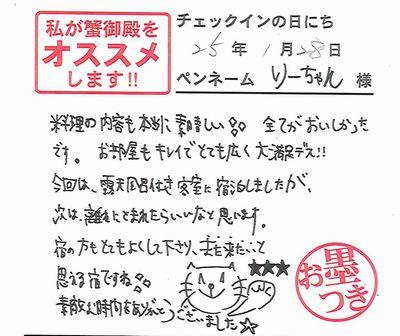 私が蟹御殿を
オススメ
します!!
チェックインの日にち
25年 1月28日
ペンネーム りーちゃん 様
料理の内容も本当に素晴しい♪♪ 全てがおいしかった
です。 お部屋もキレイでとても広く大満足デス!!
今回は、露天風呂付き客室に宿泊しましたが、
次は、離れにとまれたらいいなと思います。
宿の方もとてもよくして下さり、また来たいと
思える宿ですね♪♪
素敵な時間をありがとうございました☆
★★★
お墨つき